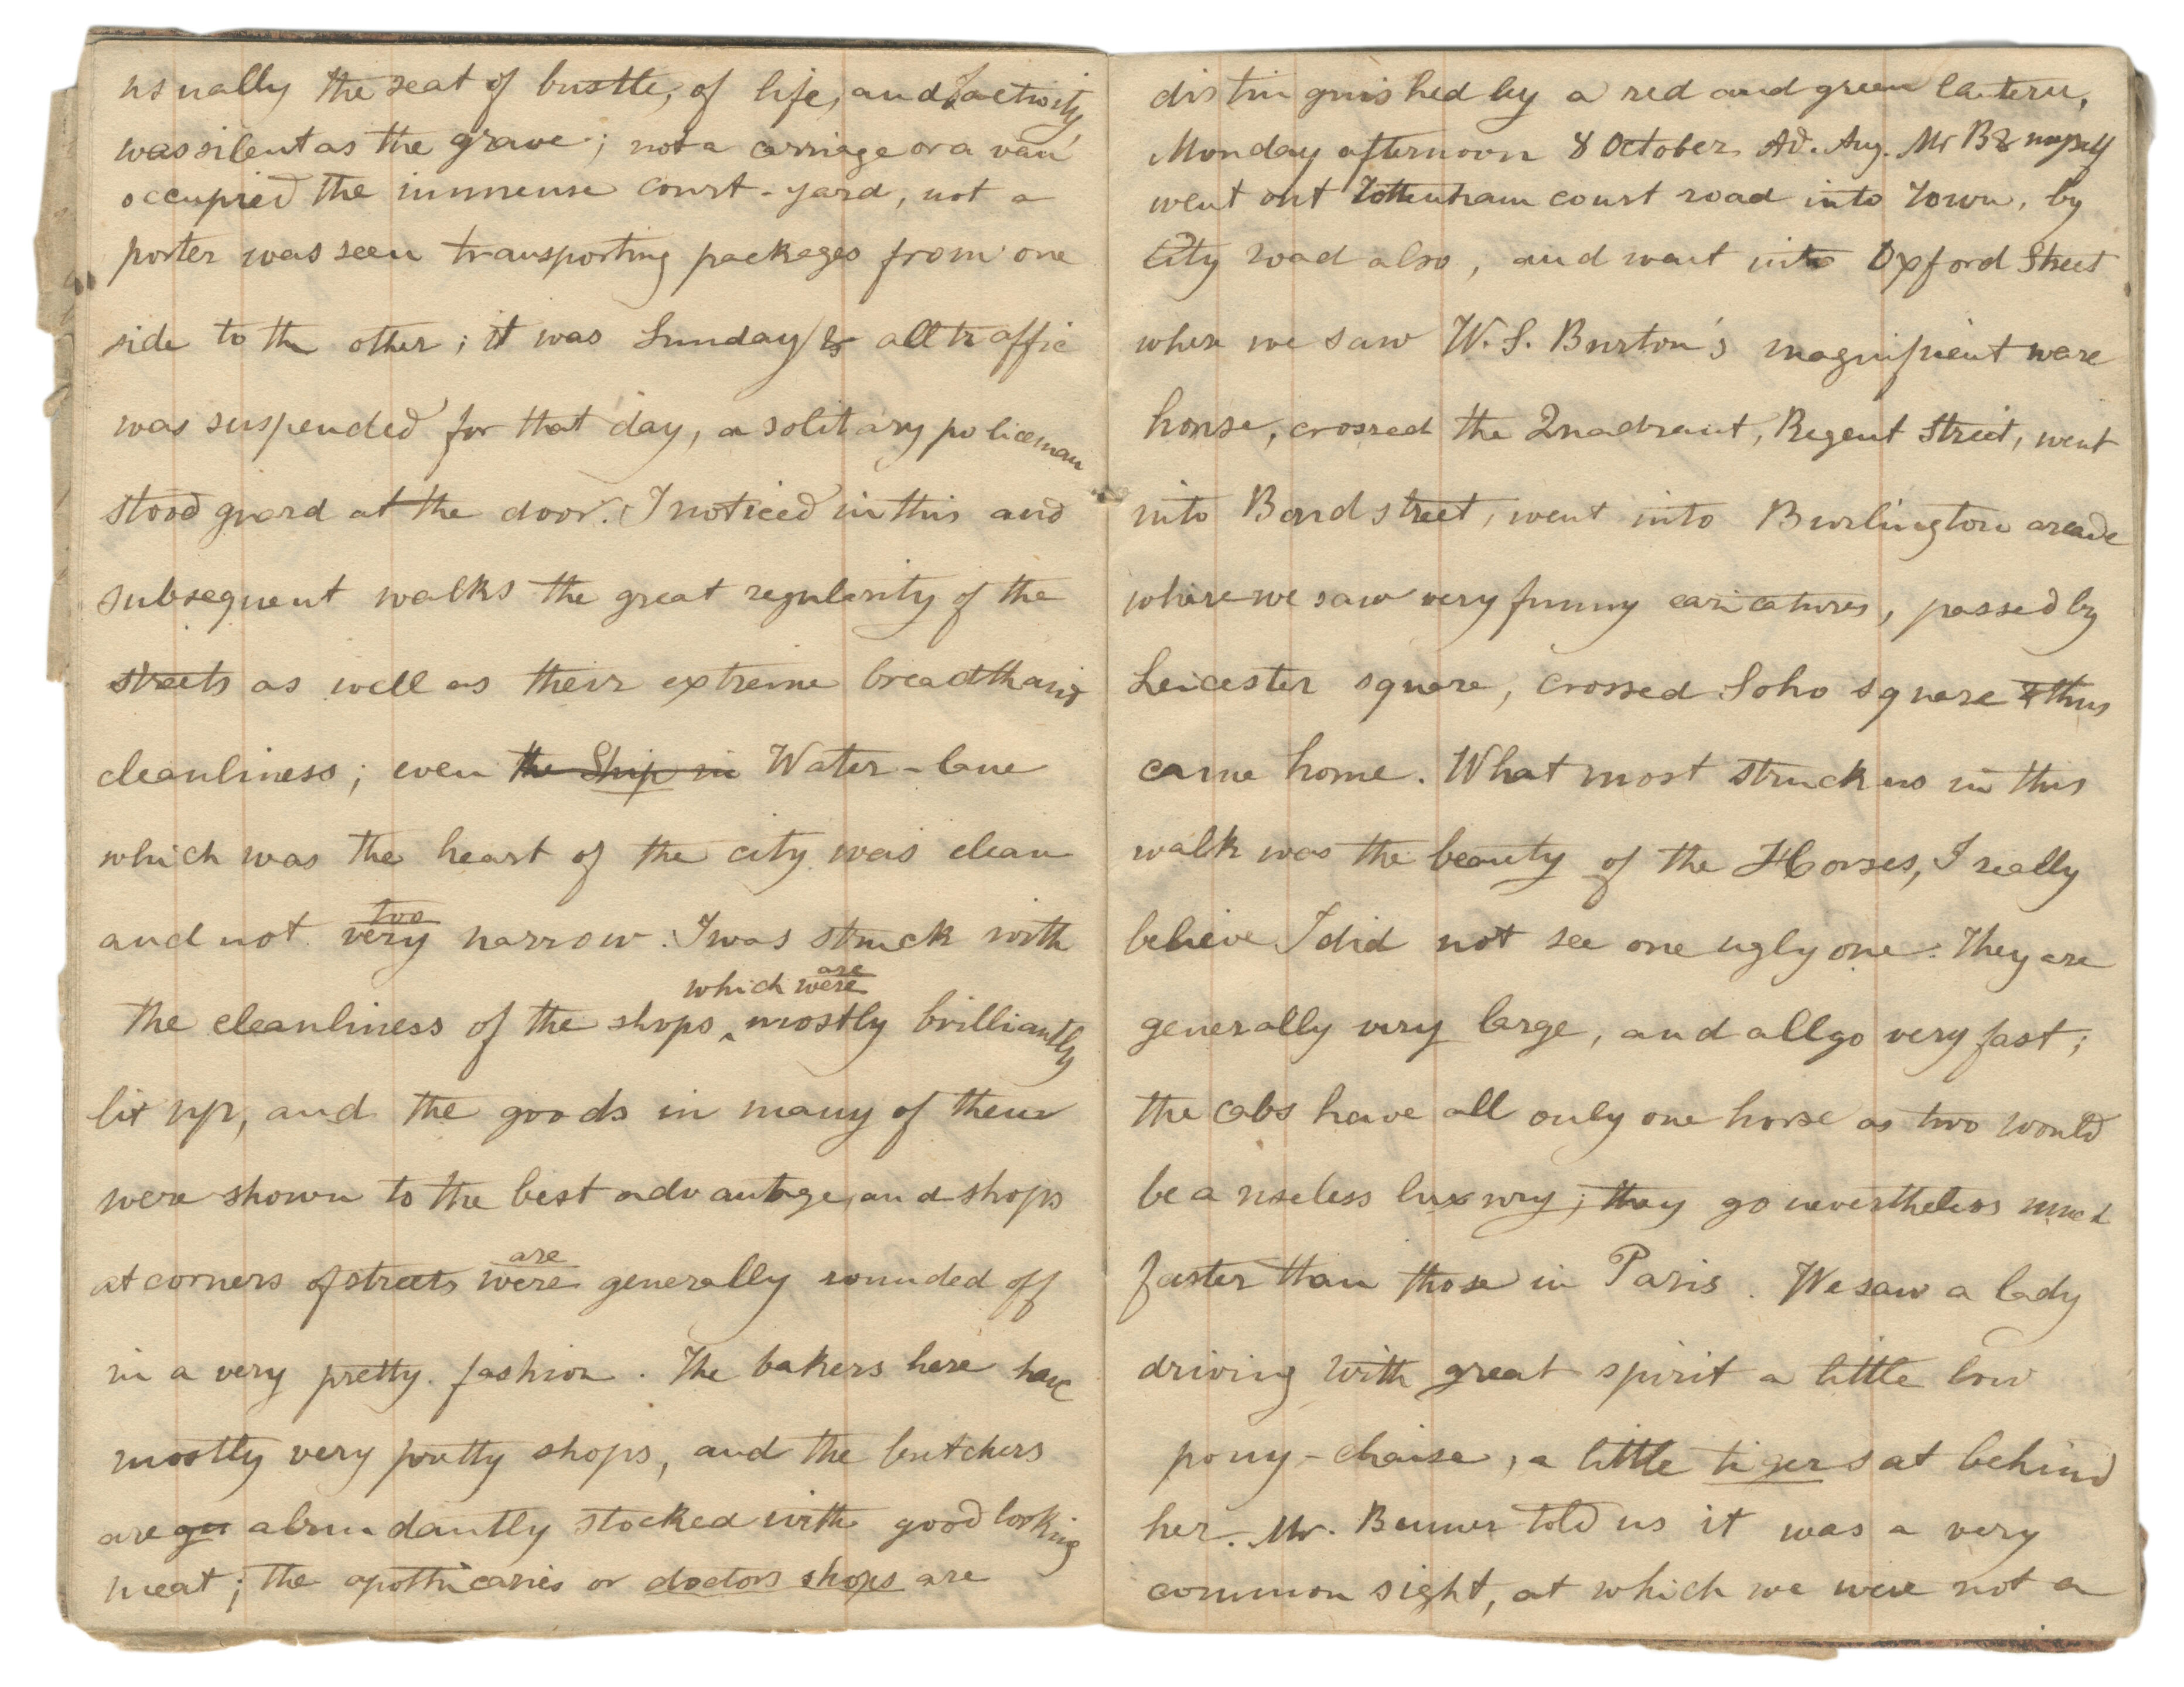 usually the seat of bustle, of life, and activity
was silent as the grave; not a carriage or a van
occupied the immense court-yard, not a
porter was seen transporting packages from one
side to the other; it was Sunday & all traffic
was suspended for that day, a solitary policeman
stood guard at the door. I noticed in this and
subsequent walks the great regularity of the
streets as well as their extreme breadth and
cleanliness; even the Ship in Water-lane
which was the heart of the city was clean
and not very too narrow. I was struck with
which were are
the cleanliness of the shops mostly brilliantly
lit up, and the goods in many of them
were shown to the best advantage, and shops
are
at corners of streets were generally rounded off
in a very pretty fashion. The bakers here have
mostly very pretty shops, and the butchers
are abundantly stocked with good looking
meat; the apothicaries or doctors shops are
distinguished by a red and green lantern,
Monday afternoon 8 October Ad. Aug. Mr B & myself
went out Tottenham court road into Town, by
City road also, and went into Oxford Street
where we saw W. S. Burton's magnificent ware
house, crossed the Quadrant, Regent Street, went
into Bond street, went into Burlington arcade
where we saw very funny caricatures, passed by
Leicester square, crossed Soho square & thus
came home. What most struck us in this
walk was the beauty of the Horses, I really
believe I did not see one ugly one. They are
generally very large, and all go very fast;
the cabs have all only one horse as two would
be a useless luxury; they go nevertheless much
faster than those in Paris. We saw a lady
driving with great spirit a little low
pony-chaise, a little tiger sat behind
her. Mr. told us it was a very
common sight, at which we were not a